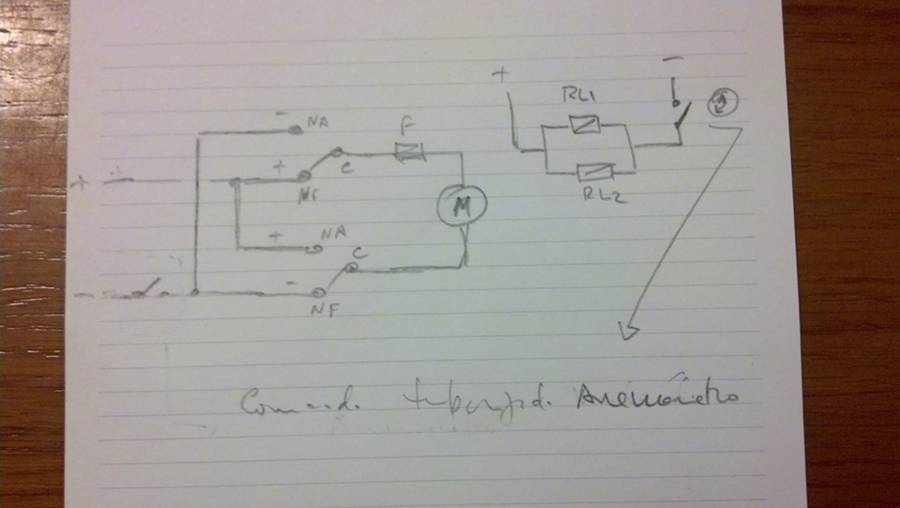 +
-
RL1
- NA
F
+ +
+
C
NF
M
RL2
+ NA
C
-
- NF
Comando Anemómetro